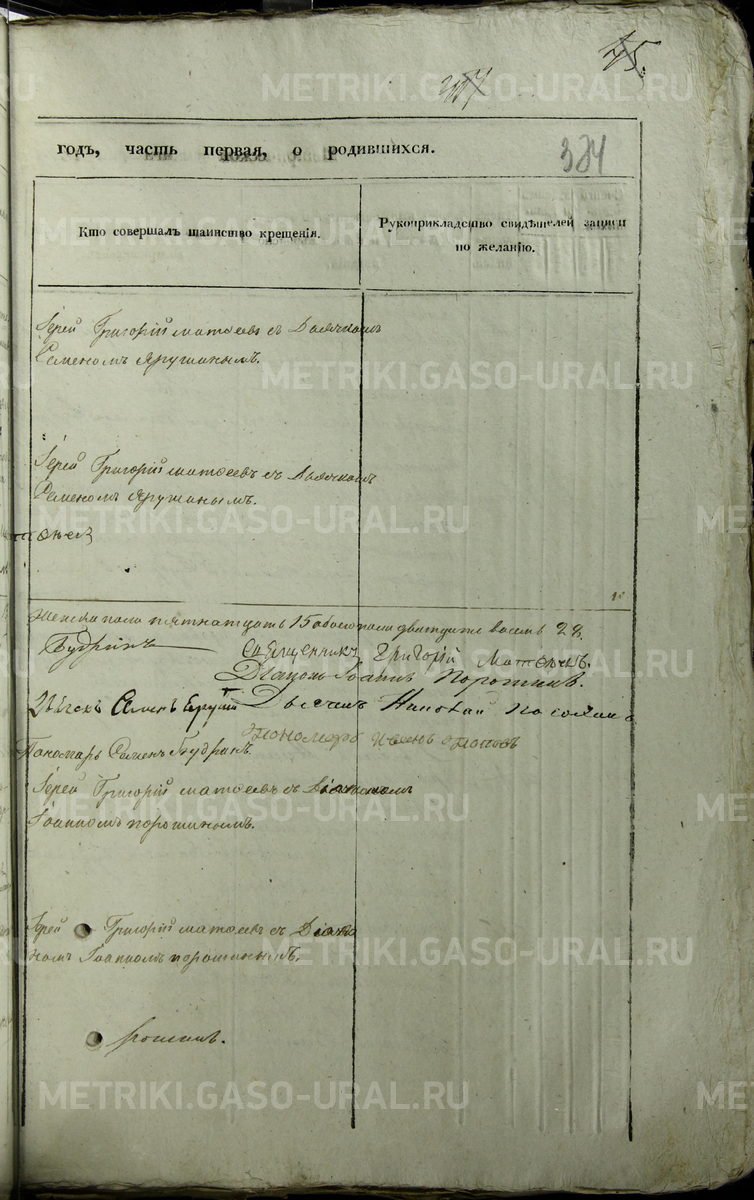 75.
384
годъ, часть первая, о родившихся.
Кто совершалъ таинство крещенія.
Рукоприкладство свидѣтелей записи по желанію.
Іерей Григорій Матѳеевъ съ Дьячкомъ
Семеномъ Ярушинымъ.
Іерей Григорій Матѳеевъ съ Дьячкомъ
Семеномъ Ярушинымъ.
Женска пола пятнатцать 15 обоего пола дватцать восемь 28.
Будринъ
Священникъ Григорій Матѳеевъ.
Діаконъ Іоаннъ Порошинъ.
Семенъ
Дьячекъ Николай
Пономарь Семенъ Будринъ.
Пономарь Иванъ Поповъ
Іерей Григорій Матѳеевъ съ Діакономъ
Іоанномъ Порошинымъ.
Іерей Григорій Матѳеевъ съ Діако
номъ Іоанномъ Порошинымъ.
METRIKI.GASO-URAL.RU